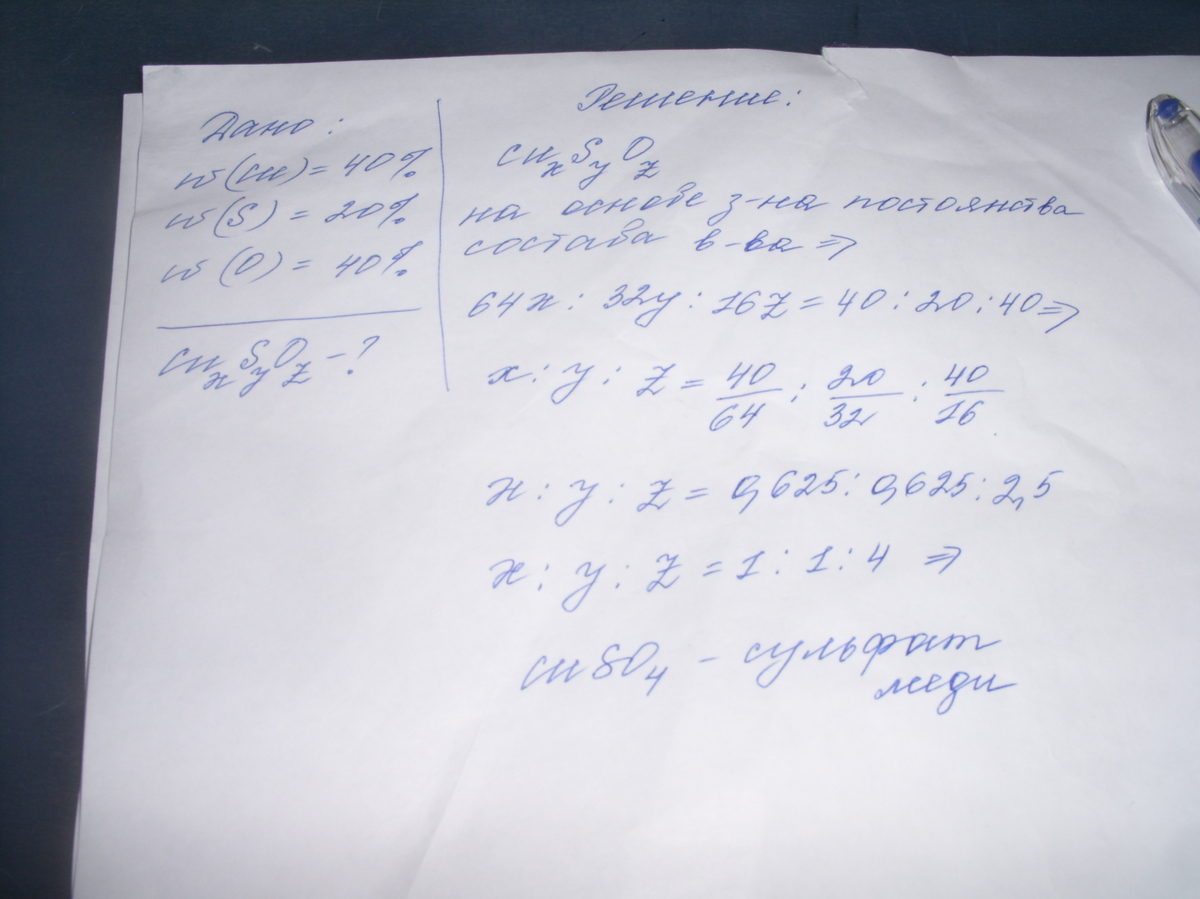 Дано:
w(Cu) = 40%
w(S) = 20%
w(O) = 40%
CuxSyOz - ?
Решение:
CuxSyOz
на основе з-на постоянства
состава в-ва ⇒
64x : 32y : 16z = 40 : 20 : 40 ⇒
x : y : z = 40/64 : 20/32 : 40/16
x : y : z = 0,625 : 0,625 : 2,5
x : y : z = 1 : 1 : 4 ⇒
CuSO4 - сульфат
меди